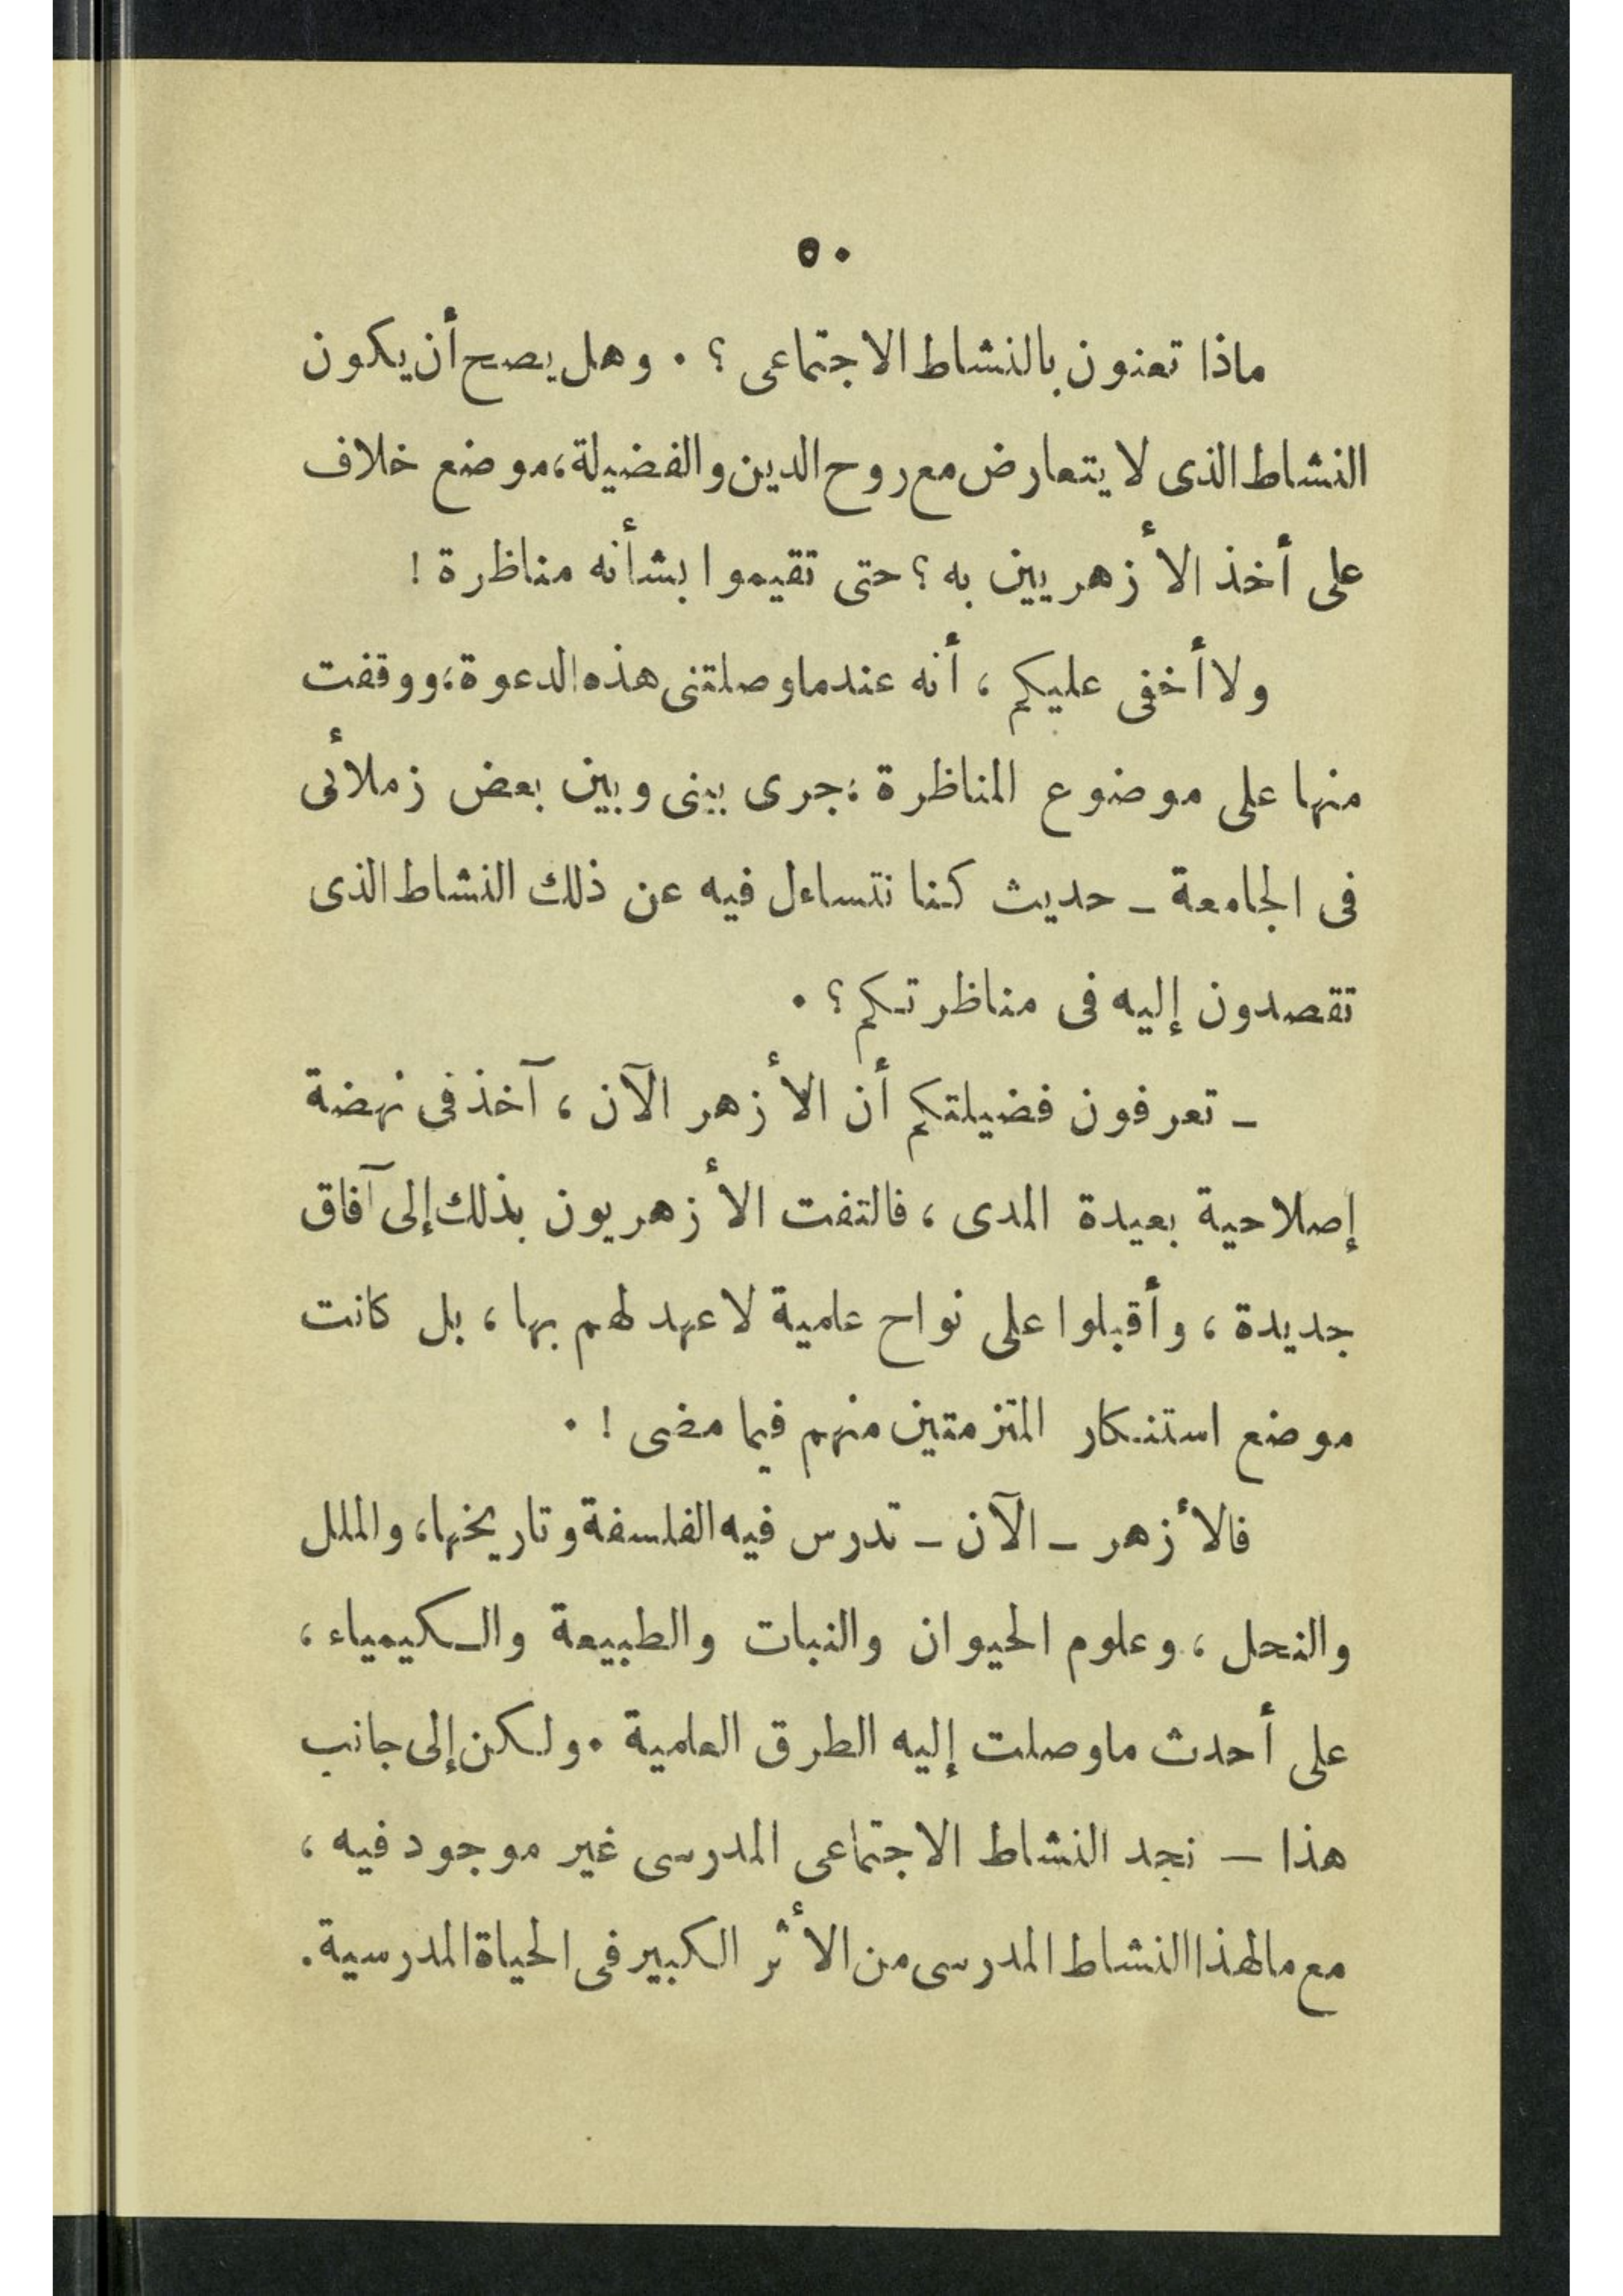 ٥٠
ماذا تعنون بالنشاط الاجتماعى ؟ . وهل يصح أن يكون
النشاط الذى لا يتعارض مع روح الدين والفضيلة، موضع خلاف
على أخذ الأزهريين به ؟ حتى تقيموا بشأنه مناظرة !
ولا أخفى عليكم ، أنه عندما وصلتنى هذه الدعوة؛ ووقفت
منها على موضوع المناظرة ؛ جرى بينى وبين بعض زملائى
فى الجامعة ـ حديث كنا نتساءل فيه عن ذلك النشاط الذى
تقصدون إليه فى مناظرتكم ؟ .
ـ تعرفون فضيلتكم أن الأزهر الآن ، آخذ فى نهضة
إصلاحية بعيدة المدى ، فالتفت الأزهريون بذلك إلى آفاق
جديدة ، وأقبلوا على نواح علمية لا عهد لهم بها ، بل كانت
موضع استنكار المتزمتين منهم فيما مضى ! .
فالأزهر ـ الآن ـ تدرس فيه الفلسفة وتاريخها، والملل
والنحل ، وعلوم الحيوان والنبات والطبيعة والكيمياء ،
على أحدث ما وصلت إليه الطرق العلمية . ولكن إلى جانب
هذا — نجد النشاط الاجتماعى المدرسى غير موجود فيه ،
مع ما لهذا النشاط المدرسى من الأثر الكبير فى الحياة المدرسية.